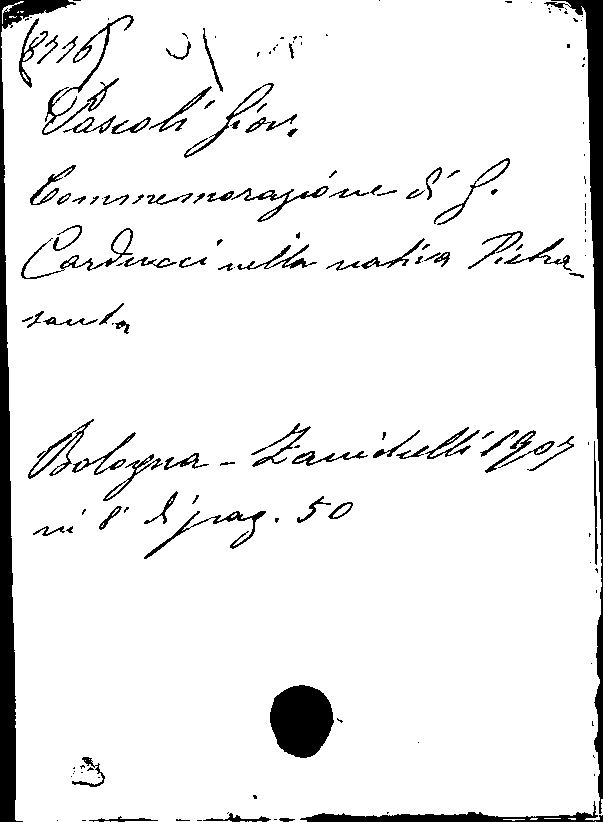 (8776)
Pascoli Giov.
Commemorazione di G.
Carducci nella nativa Pietra_
santa
Bologna - Zanichelli 1907
in 8° di pag. 50